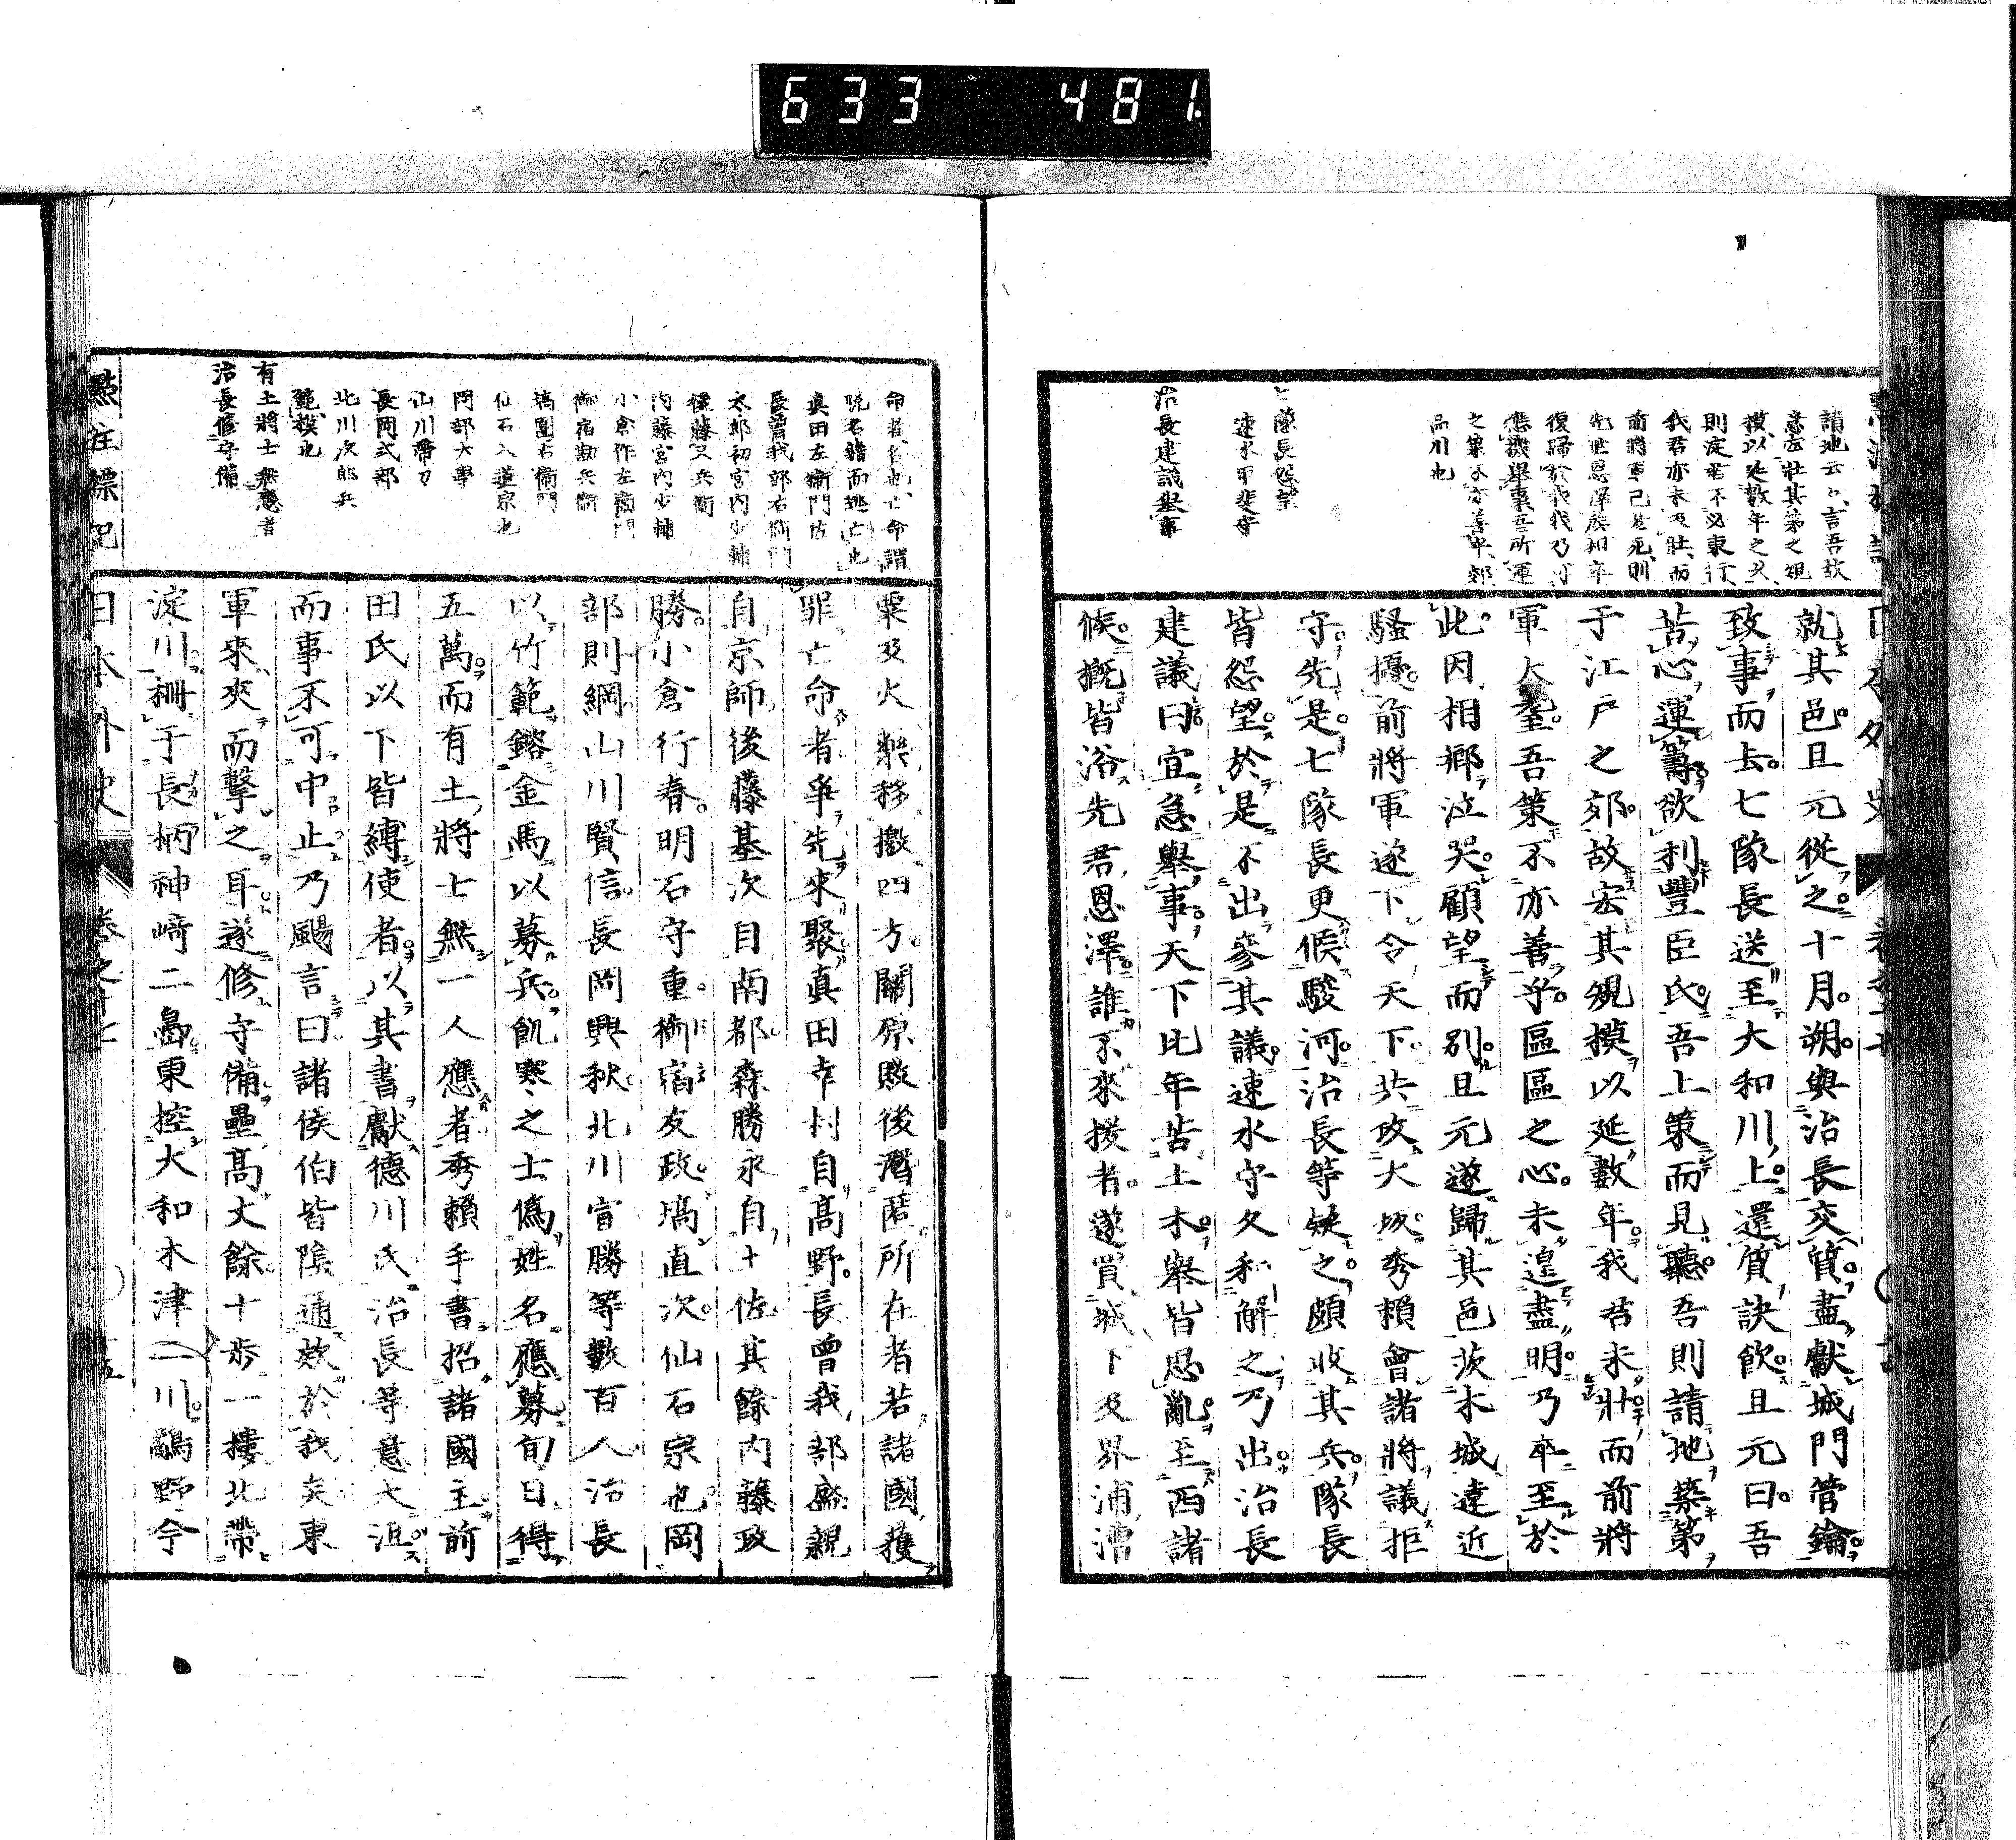 633 481.
就其邑。且元從之。十月。朔。與治長交質。盡獻城門管鑰。
致事而去。七隊長送至大和川上。還質訣飲。且元曰。吾
苦心運籌。欲利豐臣氏。吾上策而見聽。吾則請地築第
于江戶之郊。故宏其規摸。以延數年。我君未壯。而前將
軍大耋。吾策不亦善乎。區區之心。未遑盡明。乃卒至於
此。因相鄉泣哭。顧望而別。且元遂歸其邑茨木城。遠近
騷擾。前將軍遂下令天下。共攻大坂。秀賴會諸將議拒
守。先是。七隊長更候駿河。治長等疑之。頗收其兵。隊長
皆怨望。於是不出參其議。速水守久和解之。乃出。治長
建議曰。宜急舉事。天下比年苦土木。舉皆思亂。至西諸
侯。概皆浴先君恩澤。誰不來援者。遂買城下及界浦漕
七隊長怨望
速水甲斐守
治長建議舉事
粟及火藥。移檄四方。關原敗後潛匿所在者。若諸國獲
罪亡命者。爭先來聚。真田幸村自高野。長曾我部盛親
自京師。後藤基次自南都。森勝永自土佐。其餘內藤政
勝。小倉行春。明石守重。御宿友政。塙直次。仙石宗也。岡
部則綱。山川賢信。長岡興秋。北川宣勝等數百人。治長
以竹範鎔金馬。以募兵。飢寒之士。偽姓名應募。旬日得
五萬。而有土將士無一人應者。秀賴手書招諸國主。前
田氏以下。皆縛使者。以其書獻德川氏。治長等意大沮。
而事不可中止。乃颺言曰。諸侯伯皆陰通款於我矣。東
軍來。夾而擊之耳。遂修守備。壘高丈餘。十步一樓。北帶
淀川。柵于長柄神崎二島。東控大和木津二川。鴫野今
命者名也亡命謂
脫名籍而逃亡也
真田左衛門佐
長曾我部右衛門
太郎初宮內少輔
後藤又兵衛
內藤宮內少輔
小倉作左衛門
御宿勘兵衛
塙團右衛門
仙石入道宗也
岡部大學
山川帶刀
長岡式部
北川次郎兵
範模也
有土將士無應者
治長修守備
點註標記
日本外史